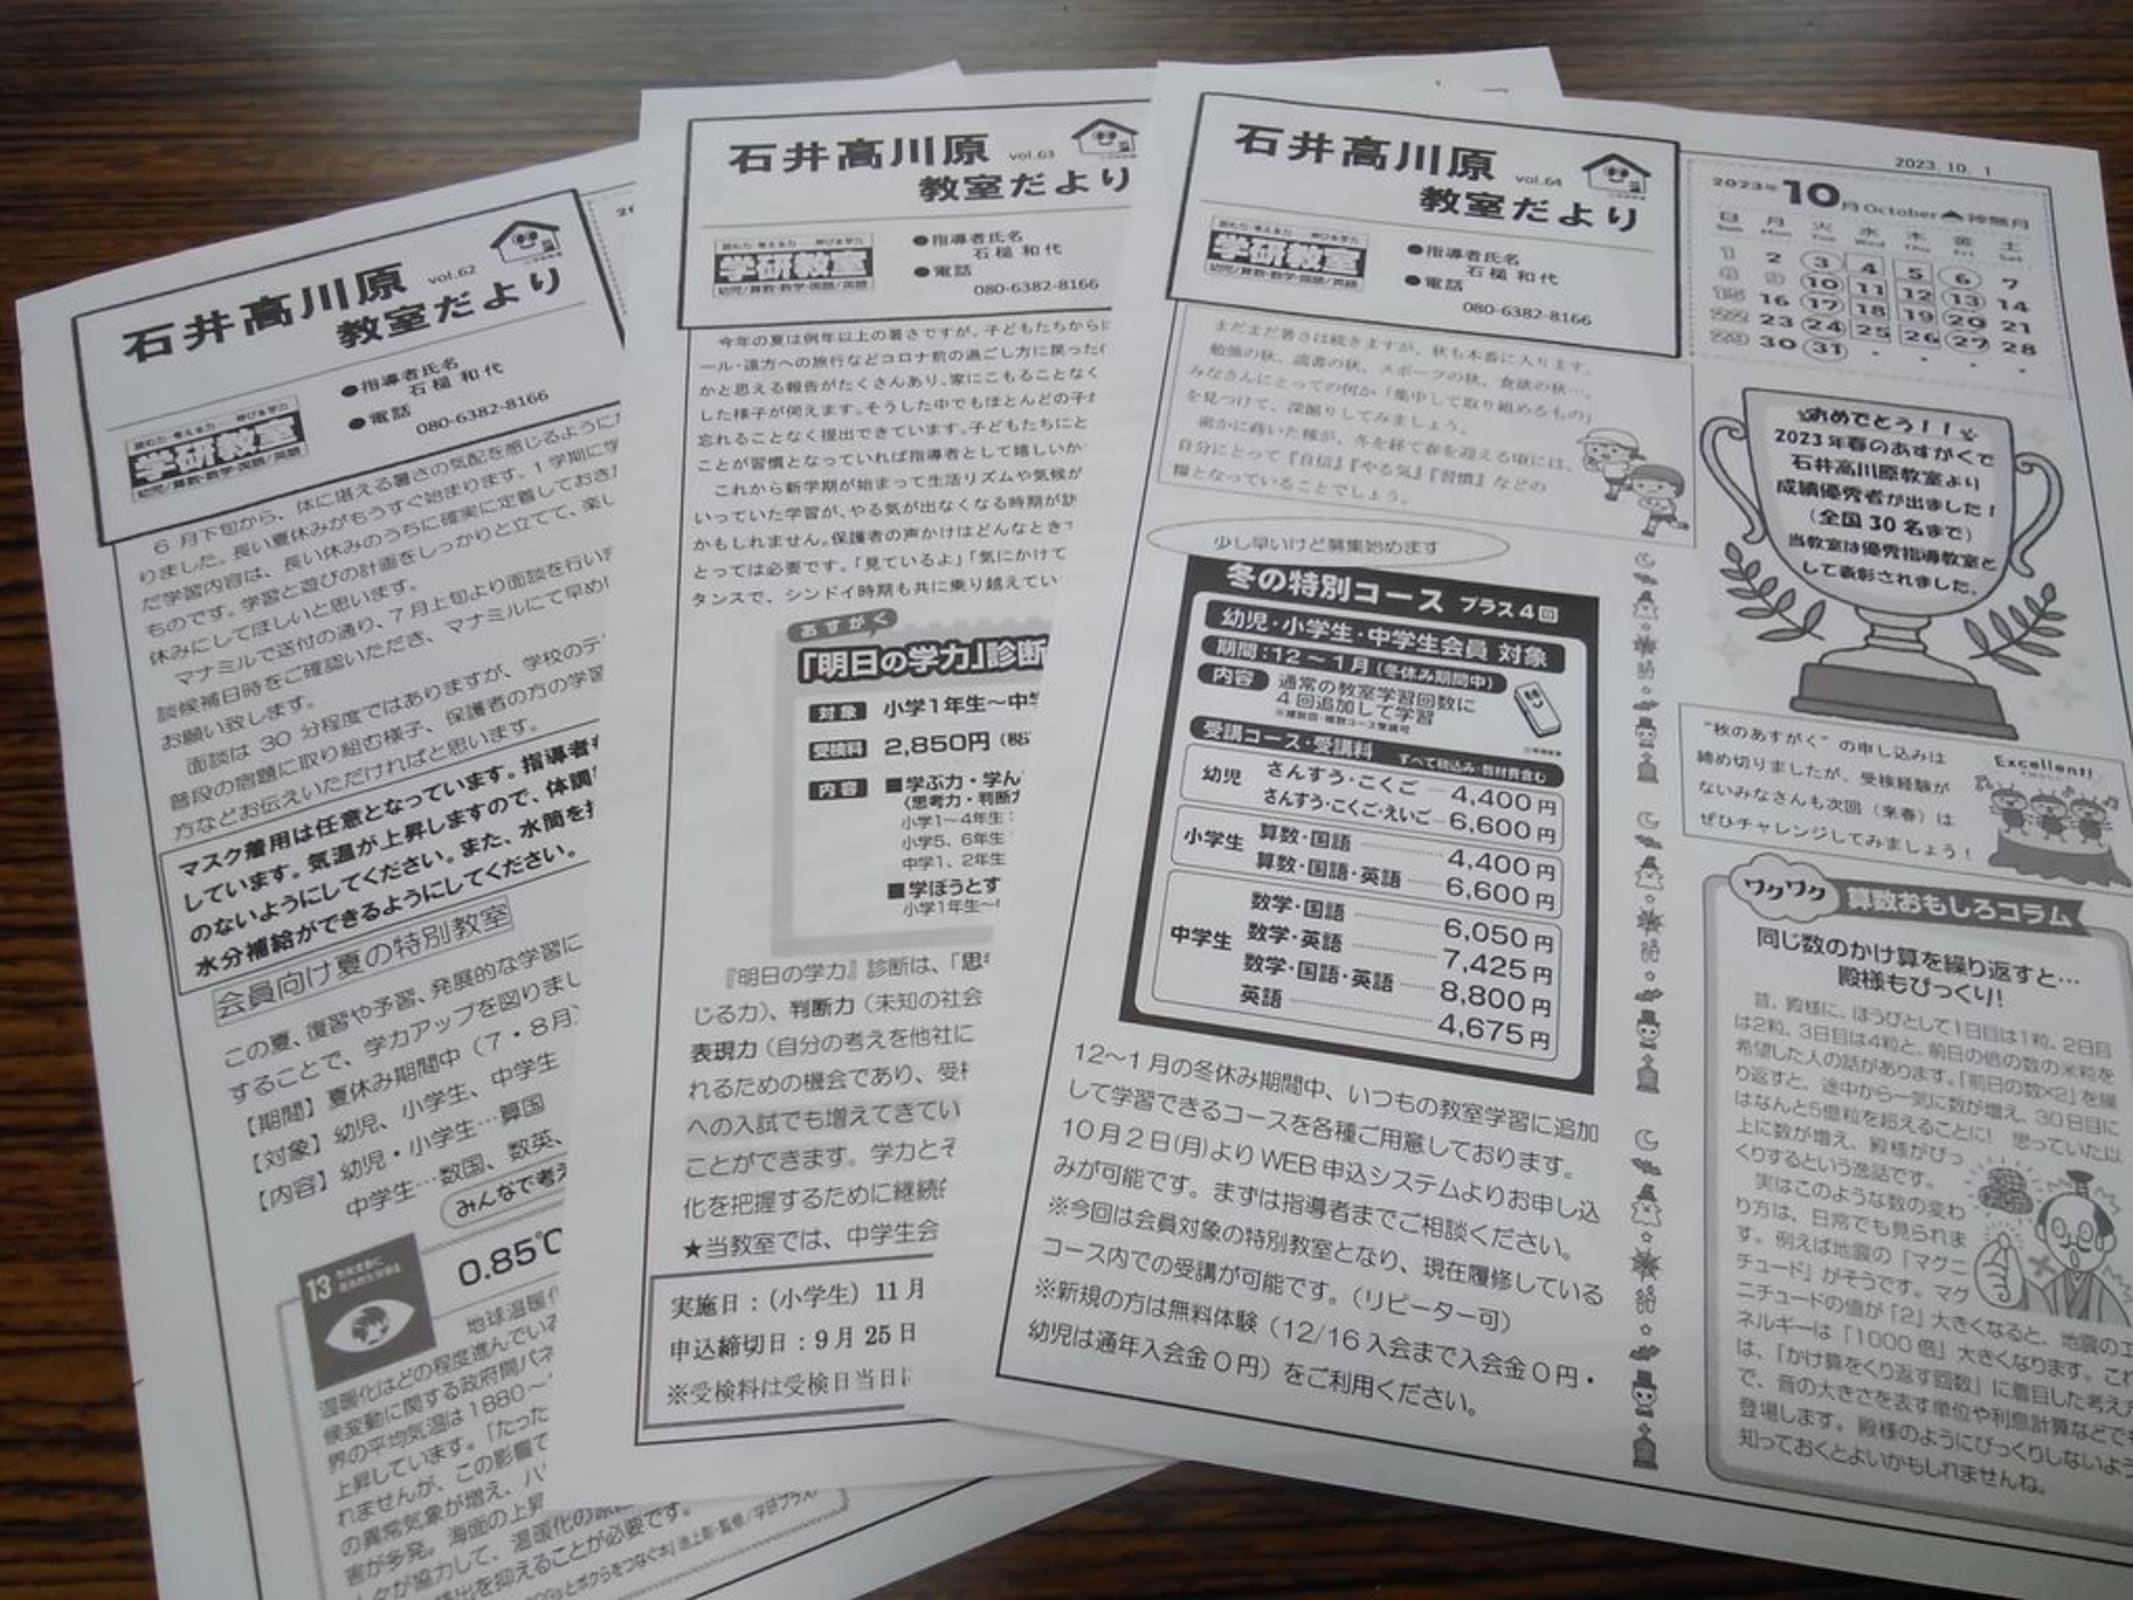 石井高川原 vol.62
教室だより
学研教室
幼児/算数・数学・国語/英語
●指導者氏名
石槌 和代
●電話
080-6382-8166
6月下旬から、体に堪える暑さの気配を感じるように
りました。長い夏休みがもうすぐ始まります。1学期に学
だ学習内容は、長い休みのうちに確実に定着しておき
ものです。学習と遊びの計画をしっかりと立てて、楽し
休みにしてほしいと思います。
マナミルで送付の通り、7月上旬より面談を行い
談候補日時をご確認いただき、マナミルにて早め
お願い致します。
面談は 30 分程度ではありますが、学校のテ
普段の宿題に取り組む様子、保護者の方の学習
方などお伝えいただければと思います。
マスク着用は任意となっています。指導者
しています。気温が上昇しますので、体調
のないようにしてください。また、水筒を
水分補給ができるようにしてください。
会員向け夏の特別教室
この夏、復習や予習、発展的な学習に
することで、学力アップを図りまし
【期間】夏休み期間中（7・8月）
【対象】幼児、小学生、中学生
【内容】幼児・小学生…算国
中学生…数国、数英、
みんなで考え
13 気候変動に
具体的な対策を
0.85℃
地球温暖化
温暖化はどの程度進んでいる
候変動に関する政府間パネ
界の平均気温は1880～
上昇しています。「たった
れませんが、この影響で
の異常気象が増え、ハ
害が多発。海面の上昇
が協力して、温暖化の原
排出を抑えることが必要です。
石井高川原 vol.63
教室だより
学研教室
幼児/算数・数学・国語/英語
●指導者氏名
石槌 和代
●電話
080-6382-8166
今年の夏は例年以上の暑さですが、子どもたちから
ール・遠方への旅行などコロナ前の過ごし方に戻った
かと思える報告がたくさんあり、家にこもることなく
した様子が伺えます。そうした中でもほとんどの子
忘れることなく提出できています。子どもたちにと
ことが習慣となっていれば指導者として嬉しいか
これから新学期が始まって生活リズムや気候が
いっていた学習が、やる気が出なくなる時期が訪
かもしれません。保護者の声かけはどんなとき
とっては必要です。「見ているよ」「気にかけて
タンスで、シンドイ時期も共に乗り越えてい
あすがく
「明日の学力」診断
対象 小学1年生～中学
受検料 2,850円（税
内容 ■学ぶ力・学ん
〈思考力・判断力
小学1～4年生：
小学5、6年生
中学1、2年生
■学ぼうとす
小学1年生～
『明日の学力』診断は、「思
じる力）、判断力（未知の社会
表現力（自分の考えを他社に
れるための機会であり、受
への入試でも増えてきてい
ことができます。学力とそ
化を把握するために継続
★当教室では、中学生会
実施日：（小学生）11月
申込締切日：9月25日
※受検料は受検日当日
石井高川原 vol.64
教室だより
学研教室
幼児/算数・数学・国語/英語
●指導者氏名
石槌 和代
●電話
080-6382-8166
まだまだ暑さは続きますが、秋も本番に入ります。
勉強の秋、読書の秋、スポーツの秋、食欲の秋…。
みなさんにとっての何か「集中して取り組めるもの」
を見つけて、深掘りしてみましょう。
密かに蒔いた種が、冬を経て春を迎える頃には、
自分にとって『自信』『やる気』『習慣』などの
糧となっていることでしょう。
少し早いけど募集始めます
冬の特別コース プラス4回
幼児・小学生・中学生会員 対象
期間：12～1月（冬休み期間中）
内容 通常の教室学習回数に
4回追加して学習
※複数回・複数コース受講可
受講コース・受講料 すべて税込み・教材費含む
幼児 さんすう・こくご 4,400円
さんすう・こくご・えいご 6,600円
小学生 算数・国語 4,400円
算数・国語・英語 6,600円
中学生 数学・国語 6,050円
数学・英語 7,425円
数学・国語・英語 8,800円
英語 4,675円
12～1月の冬休み期間中、いつもの教室学習に追加
して学習できるコースを各種ご用意しております。
10月2日(月)より WEB 申込システムよりお申し込
みが可能です。まずは指導者までご相談ください。
※今回は会員対象の特別教室となり、現在履修している
コース内での受講が可能です。（リピーター可）
※新規の方は無料体験（12/16 入会まで入会金0円・
幼児は通年入会金0円）をご利用ください。
2023.10. 1
2023年10月 October 神無月
日 月 火 水 木 金 土
Sun Mon Tue Wed Thu Fri Sat
1 2 3 4 5 6 7
8 9 10 11 12 13 14
15 16 17 18 19 20 21
22 23 24 25 26 27 28
29 30 31
おめでとう！！
2023年春のあすがくで
石井高川原教室より
成績優秀者が出ました！
（全国30名まで）
当教室は優秀指導教室と
して表彰されました。
“秋のあすがく” の申し込みは
締め切りましたが、受検経験が
ないみなさんも次回（来春）は
ぜひチャレンジしてみましょう！
Excellent!
ワクワク 算数おもしろコラム
同じ数のかけ算を繰り返すと…
殿様もびっくり！
昔、殿様に、ほうびとして1日目は1粒、2日目
は2粒、3日目は4粒と、前日の倍の数の米粒を
希望した人の話があります。「前日の数×2」を繰
り返すと、途中から一気に数が増え、30日目に
はなんと5億粒を超えることに！ 思っていた以
上に数が増え、殿様がびっ
くりするという逸話です。
実はこのような数の変わ
り方は、日常でも見られま
す。例えば地震の「マグニ
チュード」がそうです。マグ
ニチュードの値が「2」大きくなると、地震のエ
ネルギーは「1000倍」大きくなります。これ
は、「かけ算をくり返す回数」に着目した考え方
で、音の大きさを表す単位や利息計算などでも
登場します。殿様のようにびっくりしないよう
知っておくとよいかもしれませんね。